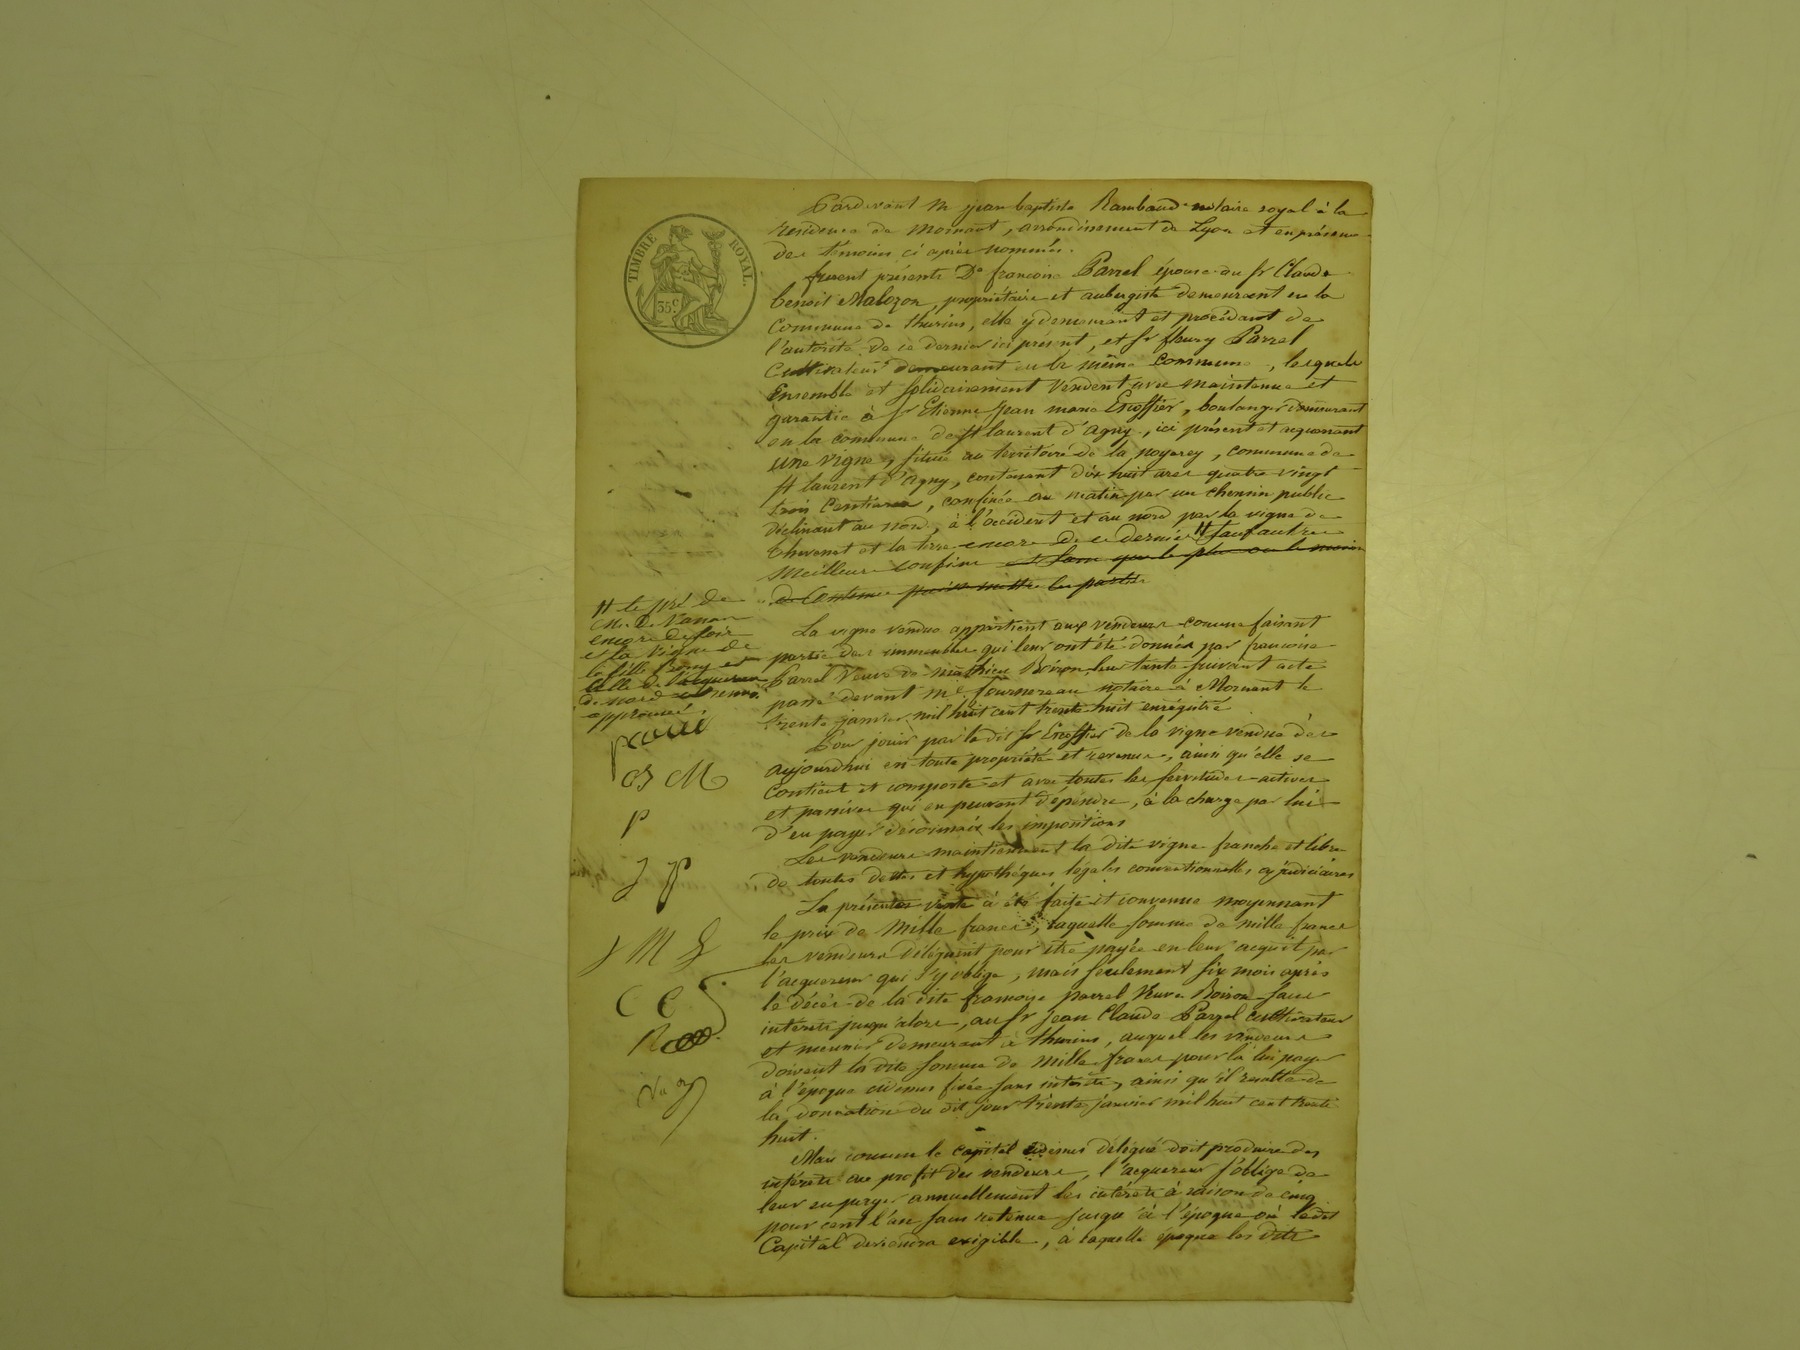 TIMBRE ROYAL.
35c.
Pardevant Me jean baptiste Rambaud notaire royal à la
residence de Mornant, arrondissement de Lyon et en présence
des témoins ci après nommés.
furent présents De francoise Parrel épouse du sr Claude
benoit Malozon, propriétaire et aubergiste demeurant en la
Commune de thurins, elle y demeurant et procédant de
l'autorité de ce dernier ici présent, et sr fleury Parrel
Cultivateur demeurant en la même commune, lesquels
Ensemble et solidairement vendent avec maintenue et
garantie à sr Etienne Jean marie Escoffier, boulanger demeurant
en la commune de st laurent d'agny, ici présent et acquerant
une vigne, située au territoire de la noyerey, commune de
st laurent d'agny, contenant dix huit ares quatre vingt
trois Centiares, confinée au matin par un chemin public
déclinant au nord, à l'occident et au nord par la vigne de
thevenet et la terre encore de ce dernier # sauf autres
Meilleurs confins et sans que le plus ou le moins
de contenue puisse nuire les parties
# le pré de
Mr De
encore de soir
et la vigne de
la fille
celle de l'acquereur
de nord
approuvé.
La vigne vendue appartient aux vendeurs comme faisant
partie des immeubles qui leur ont été donnés par francoise
Parrel Veuve de mathieu Boiron leur tante suivant acte
passé devant Me fournereau notaire à Mornant le
trente janvier mil huit cent trente huit enregistré
Pour jouir par le dit sr Escoffier de la vigne vendue dès
aujourdhui en toute propriété et revenus, ainsi qu'elle se
Contient et comporte et avec toutes les servitudes actives
et passives qui en peuvent dépendre, à la charge par lui
d'en payer désormais les impositions
Les vendeurs maintiennent la dite vigne franche et libre
de toutes dettes et hypothéques légales conventionnelles et judiciaires
La présente vente à été faite et convenue moyennant
le prix de Mille francs, laquelle somme de mille francs
les vendeurs délèguent pour être payée en leur acquit par
l'acquereur qui s'y oblige, mais seulement six mois après
le décès de la dite francoise parrel Veuve Boiron sans
intérêts jusqu'alors, au sr jean Claude Parrel cultivateur
et meunier demeurant à thurins, auquel les vendeurs
doivent la dite somme de mille francs pour la lui payer
à l'époque cidessus fixée sans intérêts, ainsi qu'il resulte de
la donnation du dit jour trente janvier mil huit cent trente
huit.
Mais comme le capital cidessus délégué doit produire des
intérêts au profit des vendeurs, l'acquereur s'oblige de
leur en payer annuellement les intérêts à raison de cinq
pour cent l'an sans retenue jusqu'à l'époque où ledit
Capital deviendra exigible, à laquelle époque les dits
B M
P
J P
J M E
C E